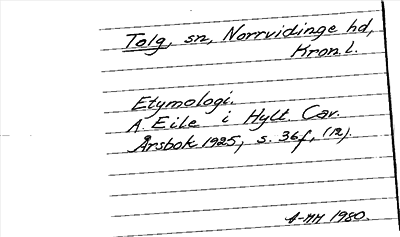 Tolg, sn, Norrvidinge hd,
Kron. l.
Etymologi.
A. Eile i Hylt. Cav.
Årsbok 1925, s. 36 f, (12).
A-MM 1980.